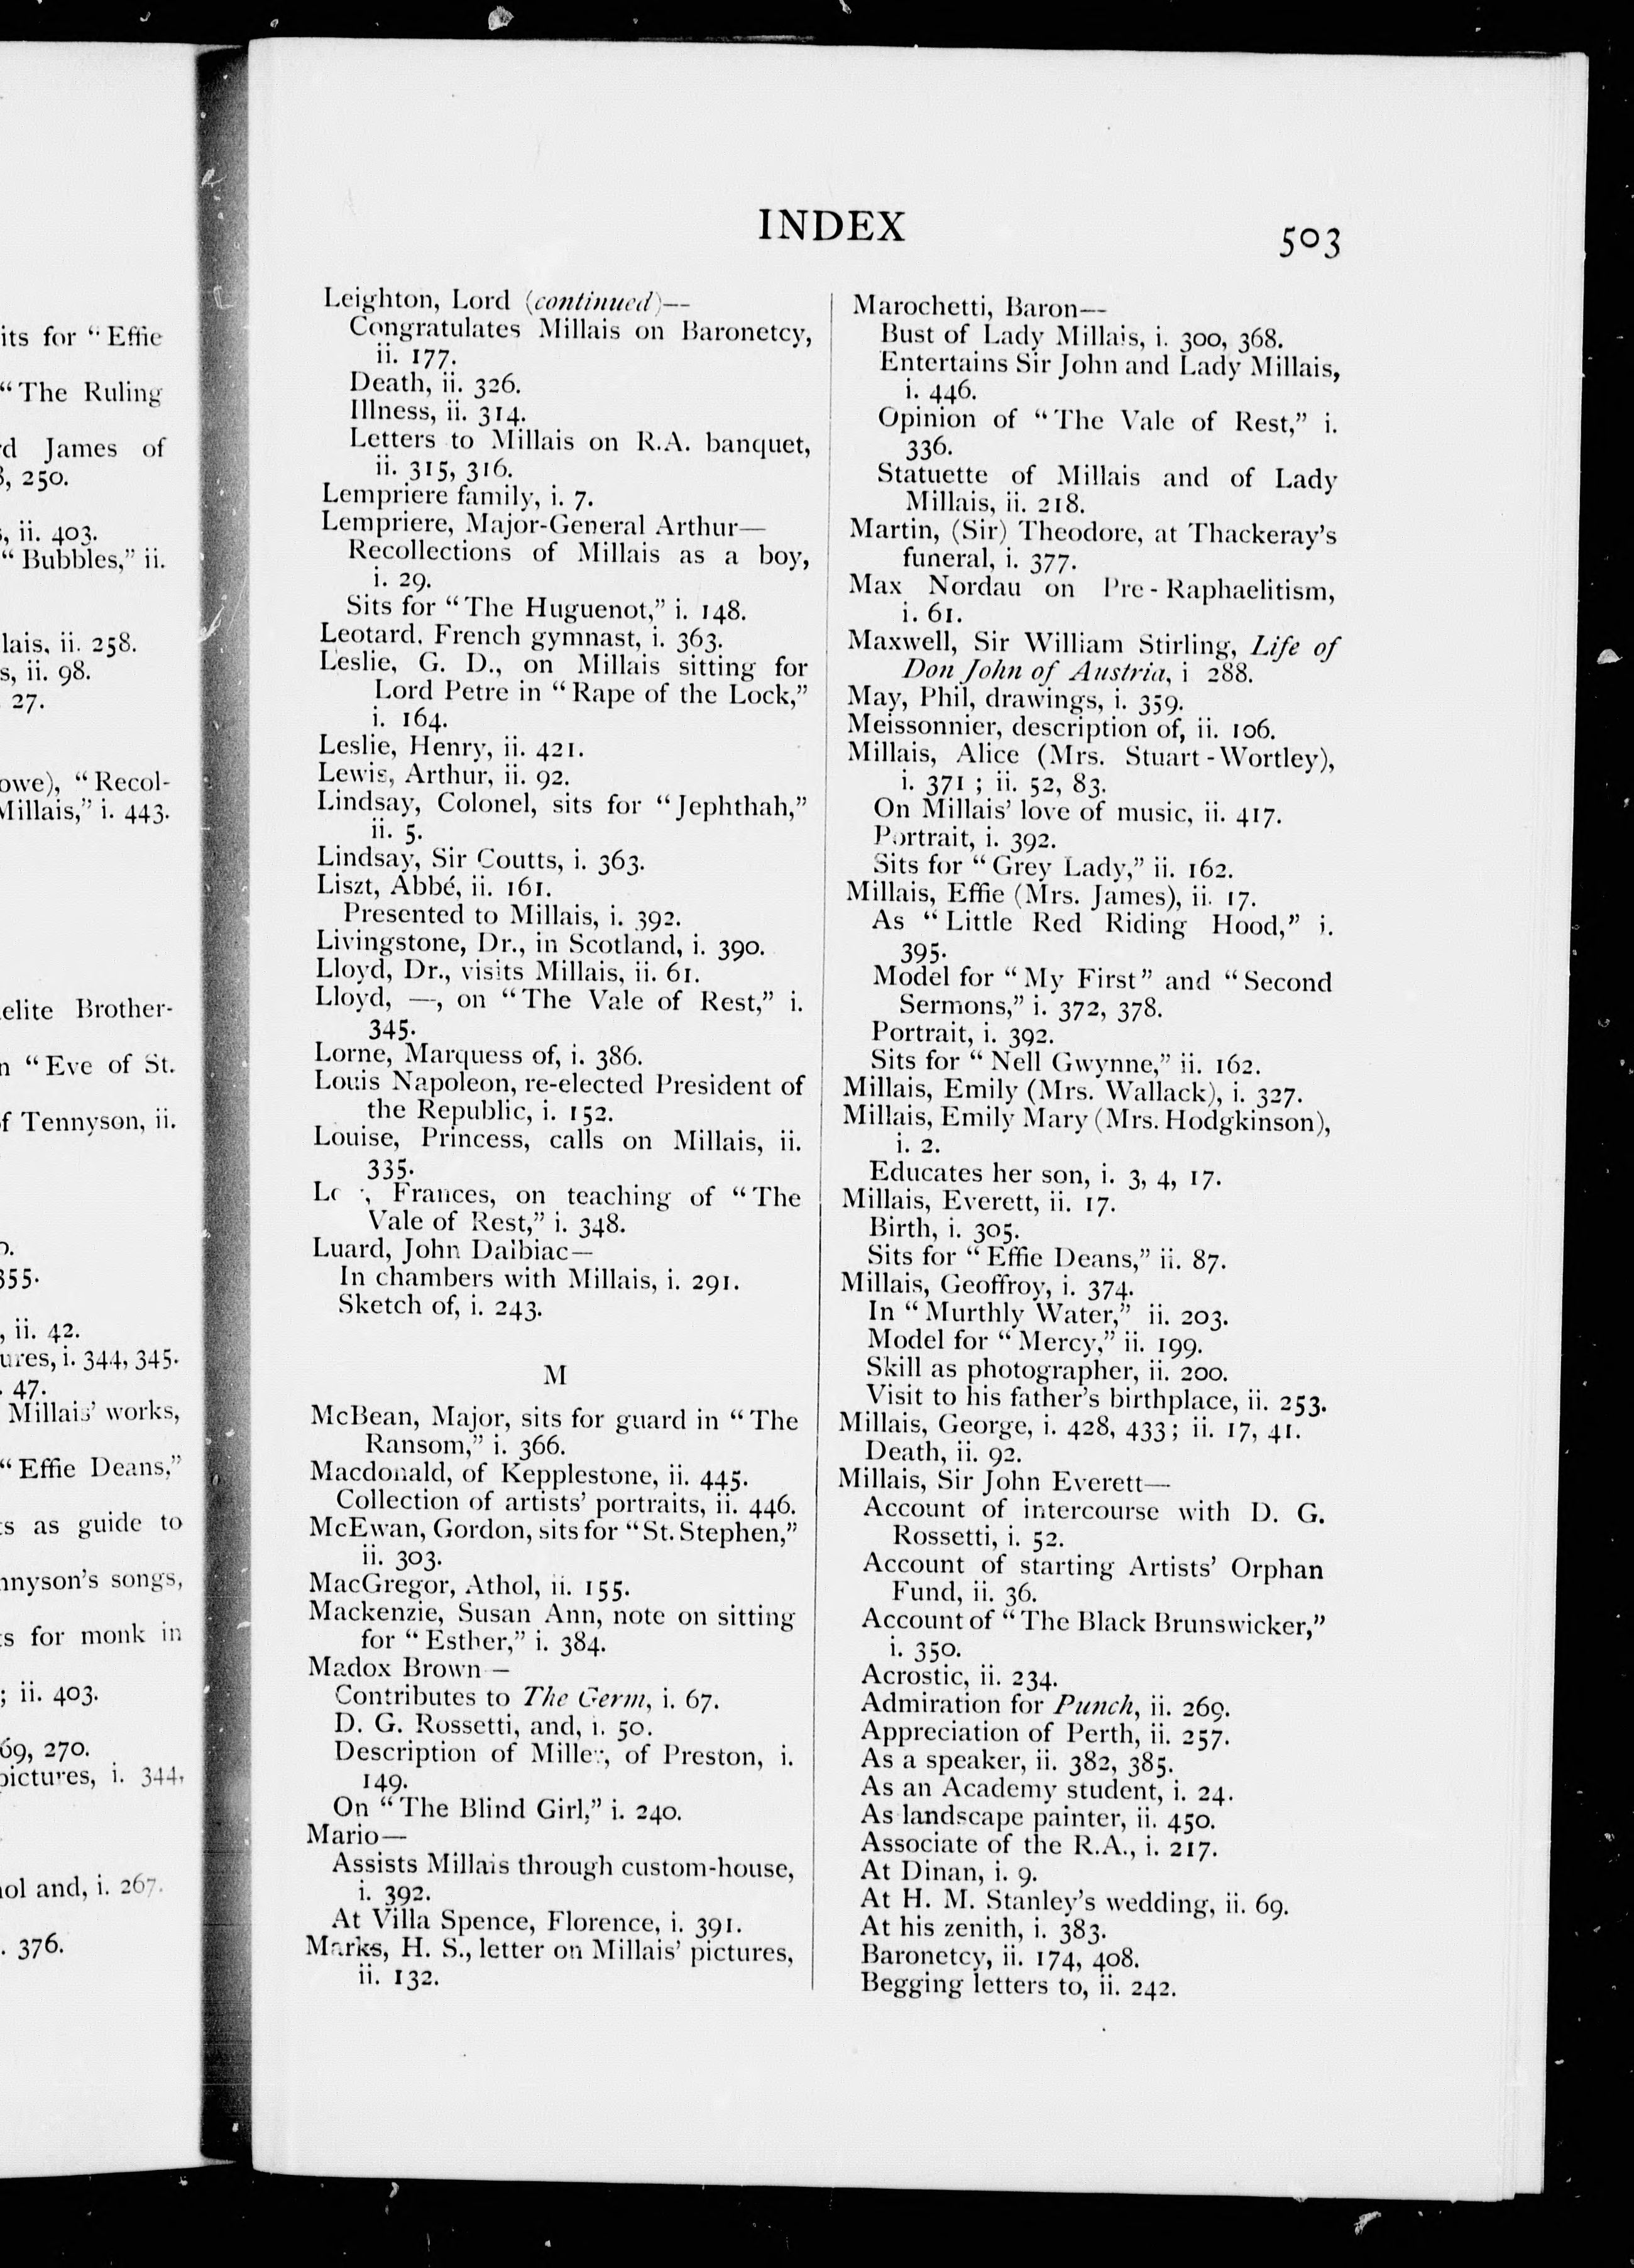 its for "Effie
"The Ruling
James of
250.
ii. 403.
"Bubbles," ii.
ii. 258.
ii. 98.
27.
"Recol-
Millais," i. 443.
Brother-
"Eve of St.
Tennyson, ii.
ii. 42.
i. 344, 345.
47.
Millais' works,
"Effie Deans,"
as guide to
songs,
for monk in
; ii. 403.
270.
pictures, i. 344,
and, i. 267.
376.
INDEX
503
Leighton, Lord (continued)—
Congratulates Millais on Baronetcy,
ii. 177.
Death, ii. 326.
Illness, ii. 314.
Letters to Millais on R.A. banquet,
ii. 315, 316.
Lempriere family, i. 7.
Lempriere, Major-General Arthur—
Recollections of Millais as a boy,
i. 29.
Sits for "The Huguenot," i. 148.
Leotard, French gymnast, i. 363.
Leslie, G. D., on Millais sitting for
Lord Petre in "Rape of the Lock,"
i. 164.
Leslie, Henry, ii. 421.
Lewis, Arthur, ii. 92.
Lindsay, Colonel, sits for "Jephthah,"
ii. 5.
Lindsay, Sir Coutts, i. 363.
Liszt, Abbé, ii. 161.
Presented to Millais, i. 392.
Livingstone, Dr., in Scotland, i. 390.
Lloyd, Dr., visits Millais, ii. 61.
Lloyd, —, on "The Vale of Rest," i.
345.
Lorne, Marquess of, i. 386.
Louis Napoleon, re-elected President of
the Republic, i. 152.
Louise, Princess, calls on Millais, ii.
335.
Frances, on teaching of "The
Vale of Rest," i. 348.
Luard, John Dalbiac—
In chambers with Millais, i. 291.
Sketch of, i. 243.
M
McBean, Major, sits for guard in "The
Ransom," i. 366.
Macdonald, of Kepplestone, ii. 445.
Collection of artists' portraits, ii. 446.
McEwan, Gordon, sits for "St. Stephen,"
ii. 303.
MacGregor, Athol, ii. 155.
Mackenzie, Susan Ann, note on sitting
for "Esther," i. 384.
Madox Brown—
Contributes to The Germ, i. 67.
D. G. Rossetti, and, i. 50.
Description of Miller, of Preston, i.
149.
On "The Blind Girl," i. 240.
Mario—
Assists Millais through custom-house,
i. 392.
At Villa Spence, Florence, i. 391.
Marks, H. S., letter on Millais' pictures,
ii. 132.
Marochetti, Baron—
Bust of Lady Millais, i. 300, 368.
Entertains Sir John and Lady Millais,
i. 446.
Opinion of "The Vale of Rest," i.
336.
Statuette of Millais and of Lady
Millais, ii. 218.
Martin, (Sir) Theodore, at Thackeray's
funeral, i. 377.
Max Nordau on Pre-Raphaelitism,
i. 61.
Maxwell, Sir William Stirling, Life of
Don John of Austria, i 288.
May, Phil, drawings, i. 359.
Meissonnier, description of, ii. 106.
Millais, Alice (Mrs. Stuart-Wortley),
i. 371; ii. 52, 83.
On Millais' love of music, ii. 417.
Portrait, i. 392.
Sits for "Grey Lady," ii. 162.
Millais, Effie (Mrs. James), ii. 17.
As "Little Red Riding Hood," i.
395.
Model for "My First" and "Second
Sermons," i. 372, 378.
Portrait, i. 392.
Sits for "Nell Gwynne," ii. 162.
Millais, Emily (Mrs. Wallack), i. 327.
Millais, Emily Mary (Mrs. Hodgkinson),
i. 2.
Educates her son, i. 3, 4, 17.
Millais, Everett, ii. 17.
Birth, i. 305.
Sits for "Effie Deans," ii. 87.
Millais, Geoffroy, i. 374.
In "Murthly Water," ii. 203.
Model for "Mercy," ii. 199.
Skill as photographer, ii. 200.
Visit to his father's birthplace, ii. 253.
Millais, George, i. 428, 433; ii. 17, 41.
Death, ii. 92.
Millais, Sir John Everett—
Account of intercourse with D. G.
Rossetti, i. 52.
Account of starting Artists' Orphan
Fund, ii. 36.
Account of "The Black Brunswicker,"
i. 350.
Acrostic, ii. 234.
Admiration for Punch, ii. 269.
Appreciation of Perth, ii. 257.
As a speaker, ii. 382, 385.
As an Academy student, i. 24.
As landscape painter, ii. 450.
Associate of the R.A., i. 217.
At Dinan, i. 9.
At H. M. Stanley's wedding, ii. 69.
At his zenith, i. 383.
Baronetcy, ii. 174, 408.
Begging letters to, ii. 242.